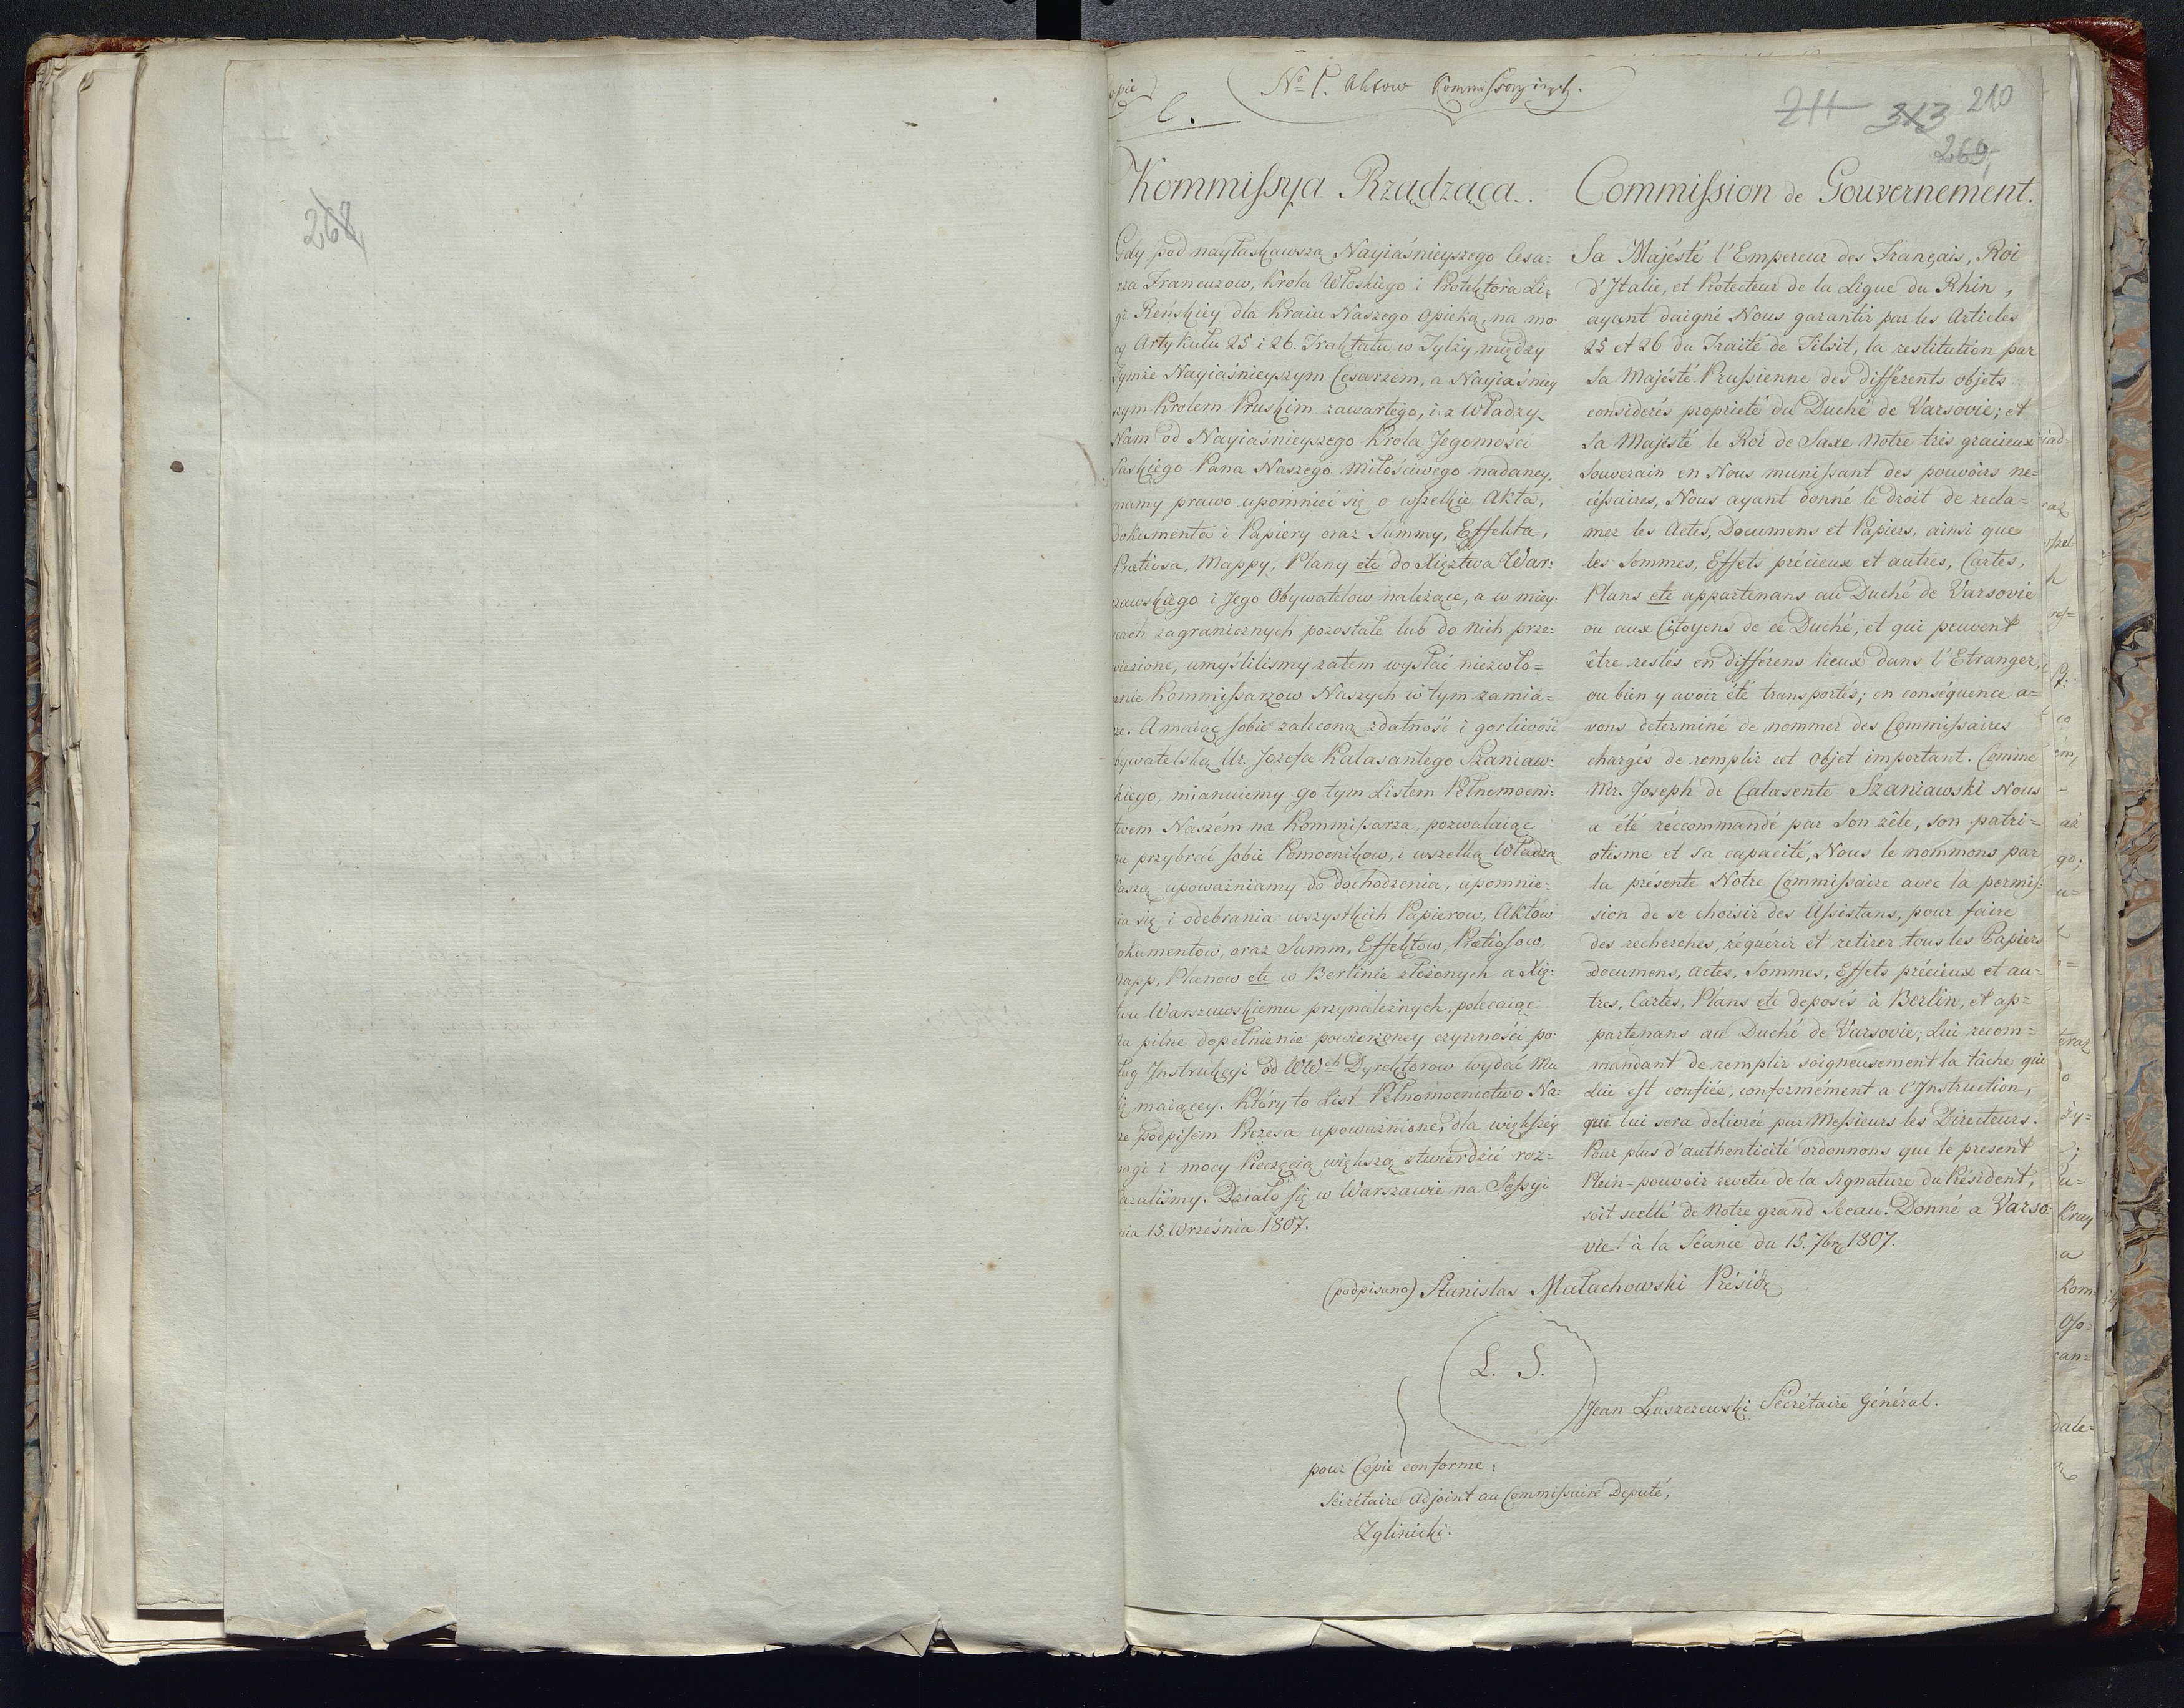 268
opie
C.
No 1. Aktow Kommissoryinych.
211 313 210
269,
Kommissya Rządząca.
Gdy pod nayłaskawszą Nayiaśnieyszego Cesa:
rza Francuzow, Krola Włoskiego i Protektora Li:
gi Reńskiey dla Kraiu Naszego opieką, na mo:
cy Artykułu 25 i 26. Traktatu w Tylży, między
Tymże Nayiaśnieyszym Cesarzem, a Nayiaśniey
szym Krolem Pruskim zawartego, i z Władzy
Nam od Nayiaśnieyszego Krola Jegomości
Saskiego Pana Naszego Miłościwego nadaney,
mamy prawo upomnieć się o wszelkie Akta,
Dokumenta i Papiery oraz Summy, Effekta,
Prætiosa, Mappy, Plany etc do Xięztwa War:
szawskiego i Jego Obywatelow należące, a w miey:
scach zagranicznych pozostałe lub do nich prze:
wiezione, umyśliliśmy zatem wysłać niezwło=
cznie Kommissarzow Naszych w tym zamia=
rze. A maiąc sobie zaleconą zdatność i gorliwość
obywatelską Ur. Jozefa Kalasantego Szaniaw:
skiego, mianuiemy go tym Listem Pełnomocni:
twem Naszém na Kommissarza, pozwalaiąc
mu przybrać sobie Pomocnikow, i wszelką Władzą
Naszą upoważniamy do dochodzenia, upomnie:
nia się i odebrania wszystkich Papierow, Aktów
Dokumentów, oraz Summ, Effektow, Prætiosow,
Mapp, Planow etc w Berlinie złożonych a Xię:
twu Warszawskiemu przynależnych, polecaiąc
mu pilne dopełnienie powierzoney czynności po:
dług Instrukcyi od WWch Dyrektorow wydać Mu
się maiącey. Który to List Pełnomocnictwo Na:
sze podpisem Prezesa upoważnione, dla większey
wagi i mocy Pieczęcią większą stwierdzić roz=
kazaliśmy. Działo się w Warszawie na Sessyi
dnia 15. Września 1807.
Commission de Gouvernement.
Sa Majésté l'Empereur des Français, Roi
d'Italie, et Protecteur de la Ligue du Rhin,
ayant daigné Nous garantir par les Articles
25 et 26 du Traité de Tilsit, la restitution par
Sa Majésté Prussienne des différents objets
considerés proprieté du Duché de Varsovie; et
Sa Majésté le Roi de Saxe Notre très gracieux
Souverain en Nous munissant des pouvoirs ne=
céssaires, Nous ayant donné le droit de recla=
mer les Actes, Documens et Papiers, ainsi que
les Sommes, Effets précieux et autres, Cartes,
Plans etc appartenans au Duché de Varsovie
ou aux Citoyens de ce Duché, et qui peuvent
être restés en différens lieux dans l'Etranger,
ou bien y avoir été transportés; en conséquence a=
vons determiné de nommer des Commissaires
chargés de remplir cet objet important. Comme
Mr. Joseph de Calasente Szaniawski Nous
a été réccommandé par Son zêle, son patri=
otisme et sa capacité, Nous le nommons par
la présente Notre Commissaire avec la permis=
sion de se choisir des Assistans, pour faire
des recherches, réquérir et retirer tous les Papiers
Documens, Actes, Sommes, Effets précieux et au=
tres, Cartes, Plans etc deposés à Berlin, et ap=
partenans au Duché de Varsovie; Lui recom=
mandant de remplir soigneusement la tâche qui
Lui est confiée, conformément a l'Instruction,
qui lui sera delivrée par Messieurs les Directeurs.
Pour plus d'authenticité ordonnons que le present
Plein-pouvoir revetu de la Signature du Président,
soit scellé de Notre grand Sceau. Donné a Varso=
vie à la Séance du 15. 7br 1807.
(podpisano) Stanislas Małachowski Présid
L. S.
Jean Łuszczewski Secrétaire Général.
pour Copie conforme:
Sécrétaire Adjoint au Commissaire Deputé,
Zglinicki.